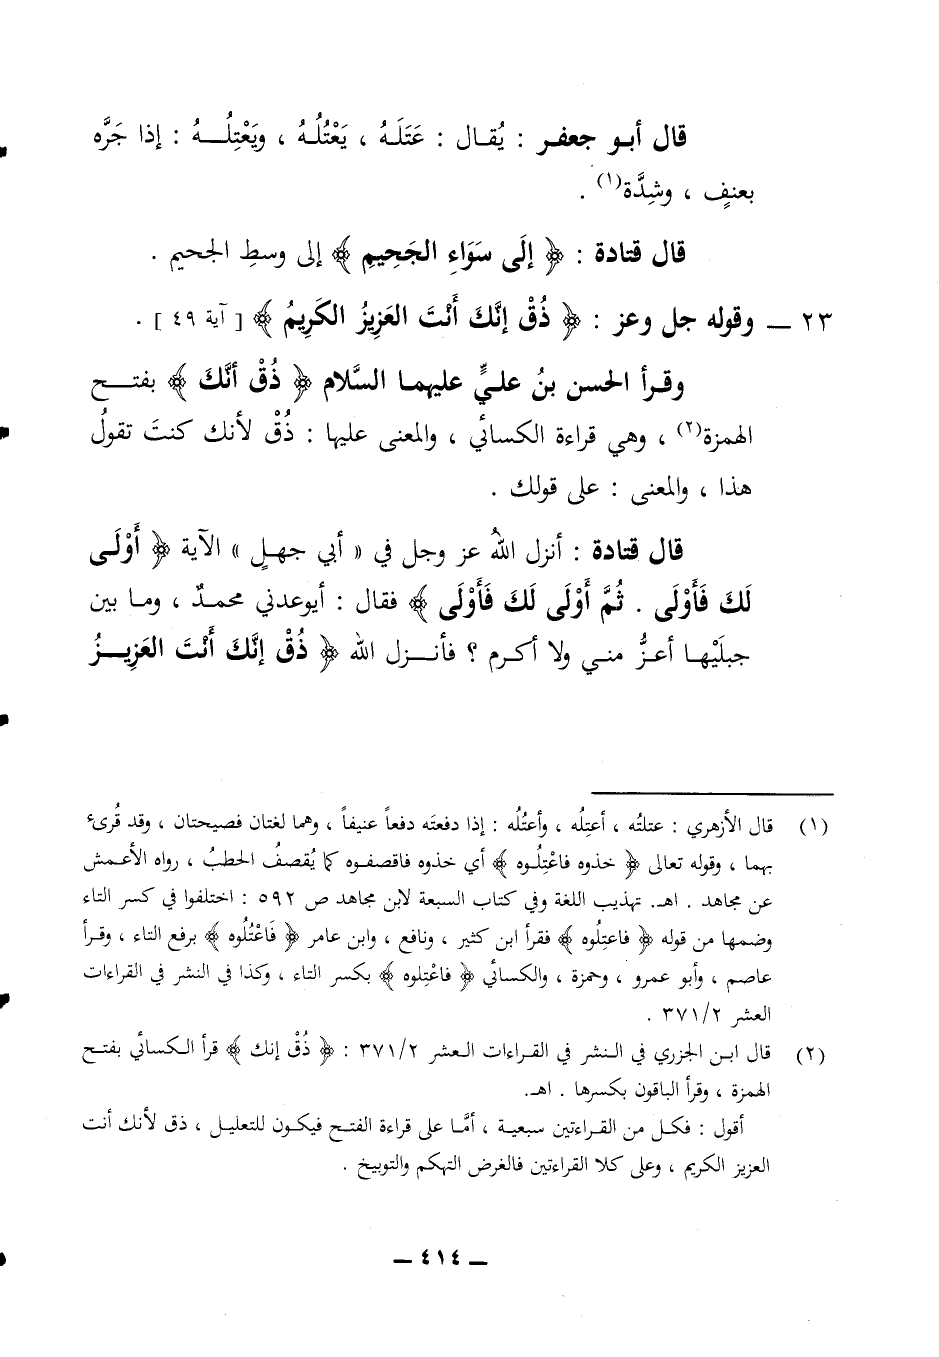 قال أبو جعفر : يُقال : عَتَلَهُ ، يَعْتُلُهُ ، ويَعْتِلُهُ : إذا جَرَّه
بعنفٍ ، وشِدَّة(١) .
قال قتادة : ﴿ إلَى سَوَاءِ الجَحِيمِ ﴾ إلى وسطِ الجحيم .
٢٣ ــ وقوله جل وعز : ﴿ ذُقْ إنَّكَ أَنْتَ العَزِيزُ الكَرِيمُ ﴾ [ آية ٤٩ ] .
وقرأ الحسن بنُ عليٍّ عليهما السَّلام ﴿ ذُقْ أنَّكَ ﴾ بفتح
الهمزة(٢) ، وهي قراءة الكسائي ، والمعنى عليها : ذُقْ لأنك كنتَ تقولُ
هذا ، والمعنى : على قولك .
قال قتادة : أنزل اللهُ عز وجل في « أبي جهلٍ » الآية ﴿ أَوْلَى
لَكَ فَأَوْلَى . ثُمَّ أَوْلَى لَكَ فَأَوْلَى ﴾ فقال : أيوعدني محمدٌ ، وما بين
جبلَيْها أعزُّ مني ولا أكرم ؟ فأنزل الله ﴿ ذُقْ إنَّكَ أَنْتَ العَزِيزُ
(١) قال الأزهري : عتلتُه ، أعتِلُه ، وأعتُلُه : إذا دفعتَه دفعاً عنيفاً ، وهما لغتان فصيحتان ، وقد قُرىء
بهما ، وقوله تعالى ﴿ خذوه فاعْتِلُوه ﴾ أي خذوه فاقصفوه كما يُقصفُ الحطبُ ، رواه الأعمش
عن مجاهد . اهـ. تهذيب اللغة وفي كتاب السبعة لابن مجاهد ص ٥٩٢ : اختلفوا في كسر التاء
وضمها من قوله ﴿ فاعتِلُوه ﴾ فقرأ ابن كثير ، ونافع ، وابن عامر ﴿ فَاعْتُلُوه ﴾ برفع التاء ، وقرأ
عاصم ، وأبو عمرو ، وحمزة ، والكسائي ﴿ فاعْتِلوه ﴾ بكسر التاء ، وكذا في النشر في القراءات
العشر ٣٧١/٢ .
(٢) قال ابن الجزري في النشر في القراءات العشر ٣٧١/٢ : ﴿ ذُقْ إنك ﴾ قرأ الكسائي بفتح
الهمزة ، وقرأ الباقون بكسرها . اهـ.
أقول : فكل من القراءتين سبعية ، أمَّا على قراءة الفتح فيكون للتعليل ، ذق لأنك أنت
العزيز الكريم ، وعلى كلا القراءتين فالغرض التهكم والتوبيخ .
ــ ٤١٤ ــ